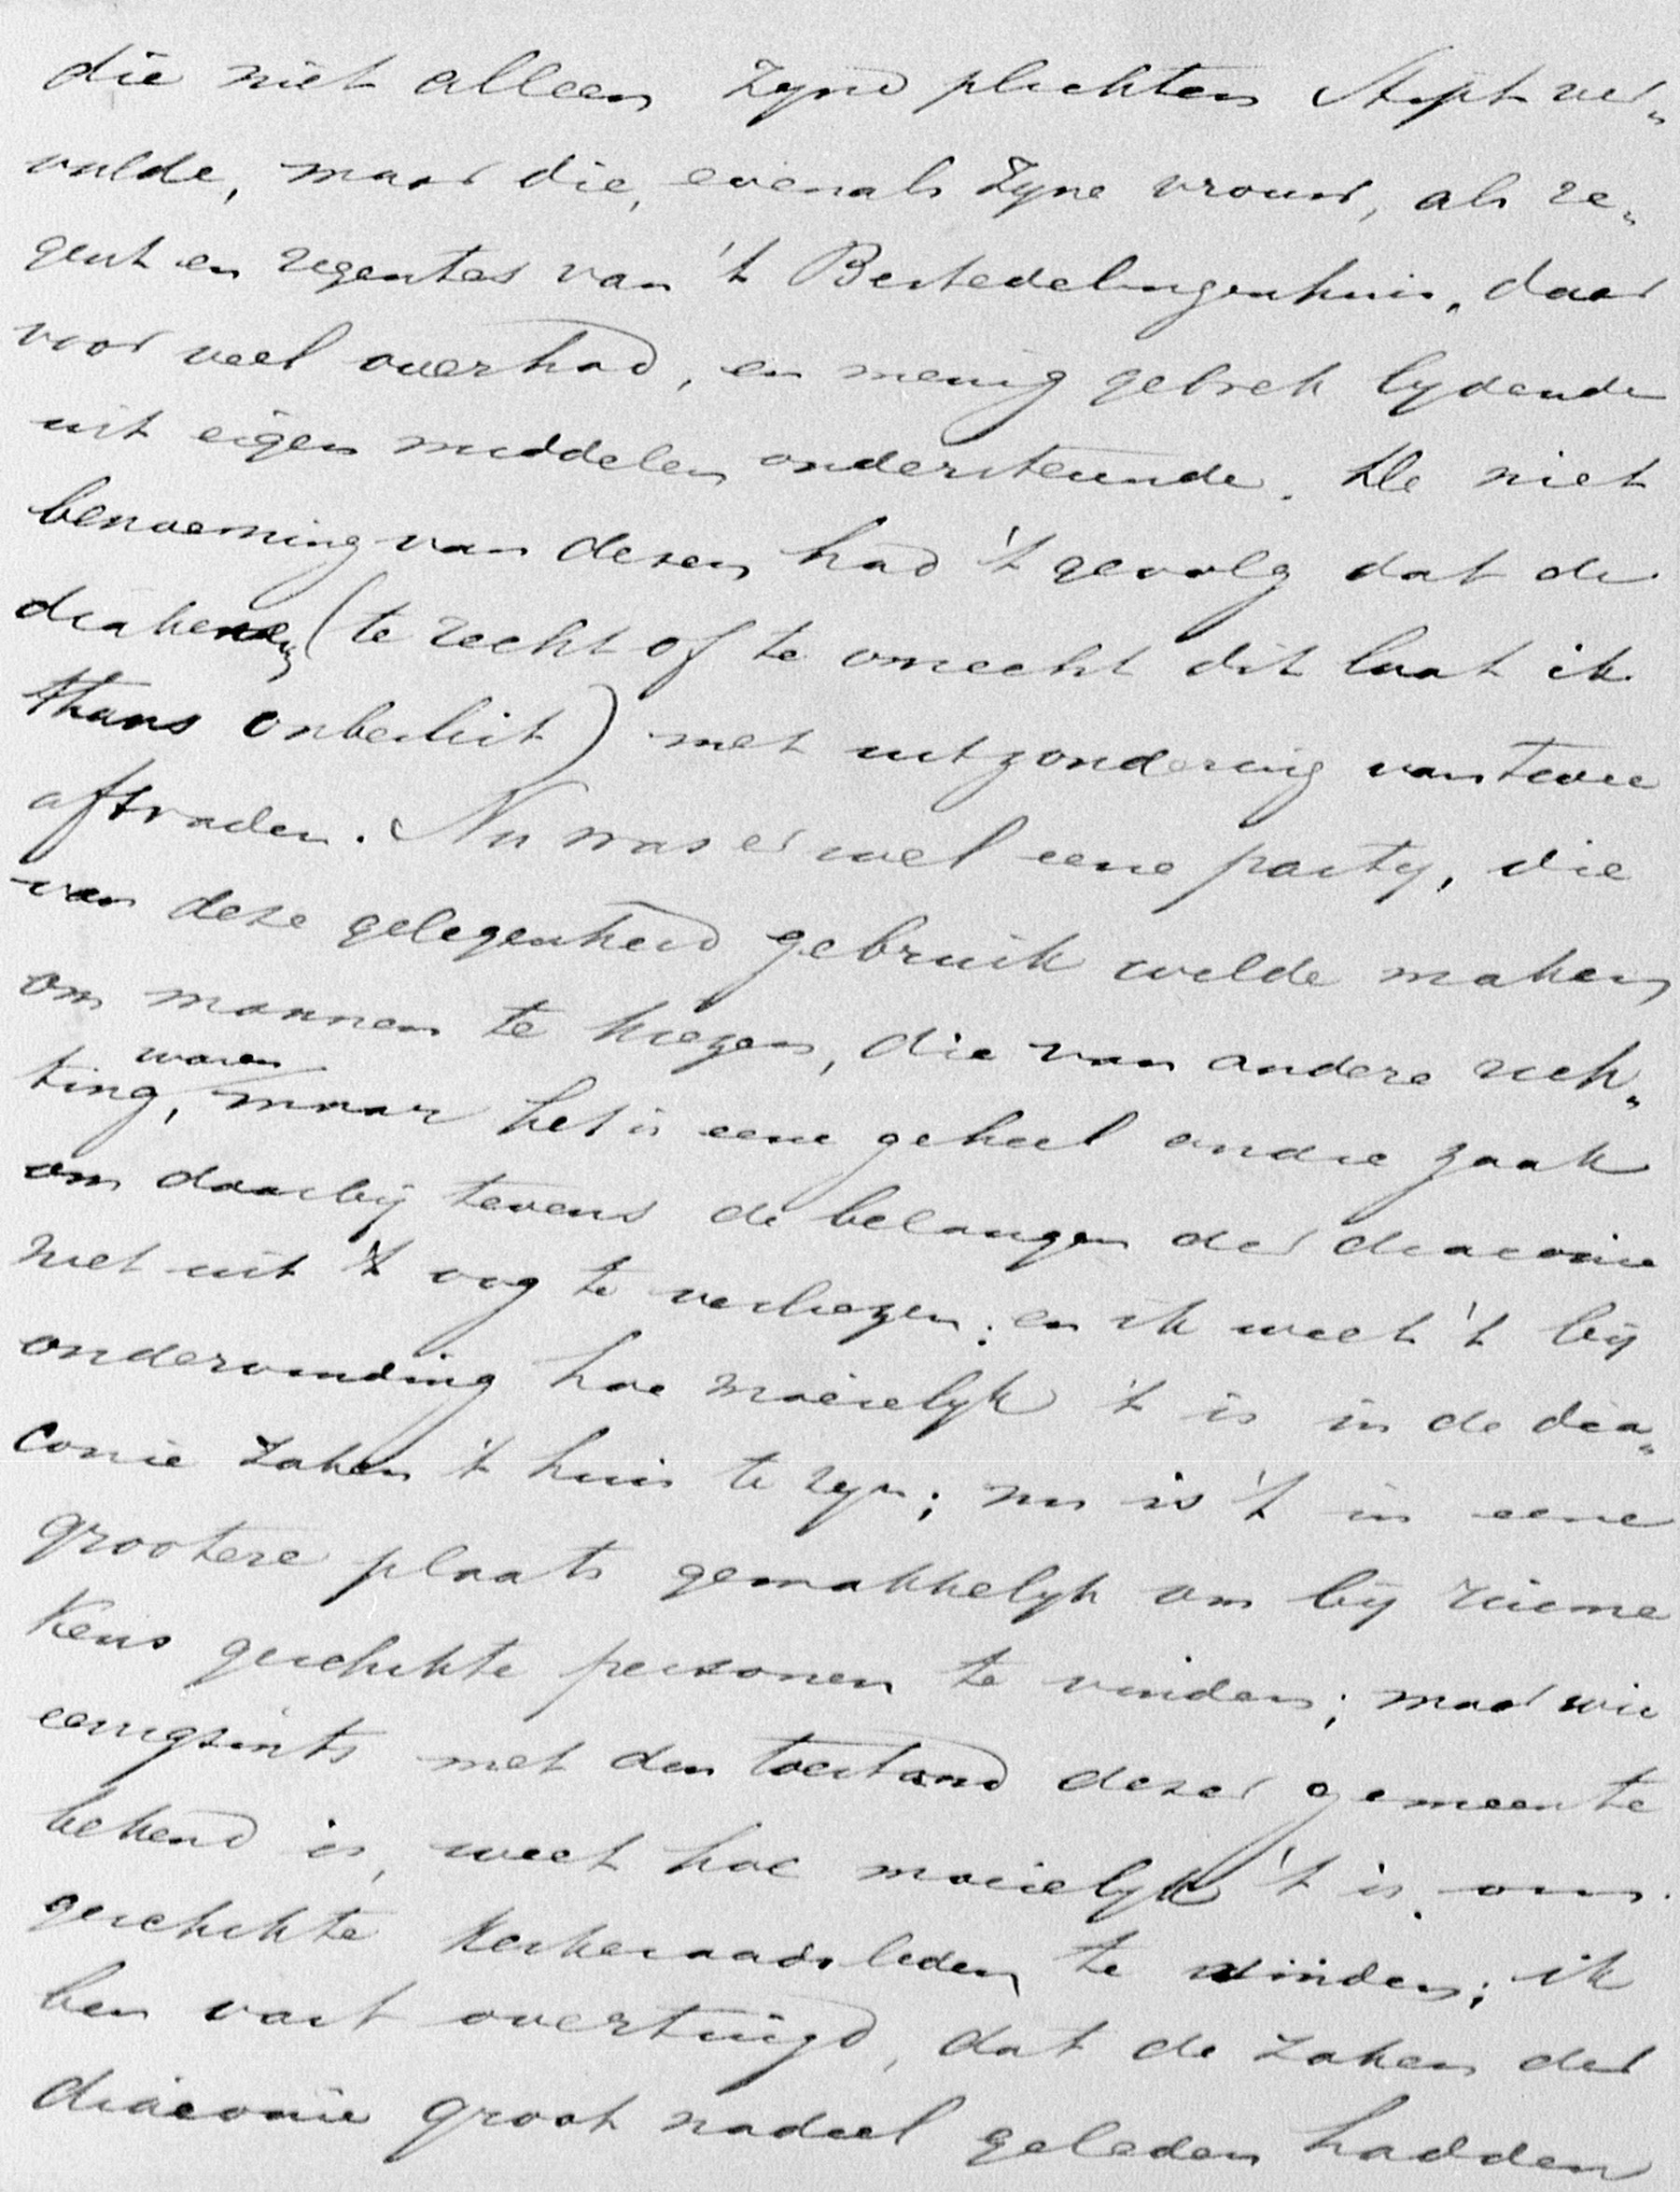 die niet alleen zyne plichten stipt ver„
vulde, maar die, evenals zyne vrouw, als re„
gent en regentes van 't Bestedelingenhuis, daar
voor veel overhad, en menig gebrek lydende
uit eigen middelen ondersteunde. De niet
benoeming van dezen had 't gevolg dat de
diakenen (te recht of te onrecht dit laat ik
thans onbeslist) met uitzondering van twee
aftraden. Nu was er wel eene party, die
van deze gelegenheid gebruik wilde maken
om mannen te kiezen, die van andere rich„
waren
ting, maar het is eene geheel andre zaak
om daarbij tevens de belangen der diaconie
niet uit 't oog te verliezen; en ik weet 't bij
ondervinding hoe moeielyk 't is in de dia„
conie zaken t huis te zyn; nu is 't in eene
grootere plaats gemakkelyk om bij ruime
keus geschikte personen te vinden; maar wie
eenigzints met den toestand dezer gemeente
bekend is, weet hoe moeielyk 't is om
geschikte kerkeraadsleden te vinden; ik
ben vast overtuigd, dat de zaken der
diaconie groot nadeel geleden hadden